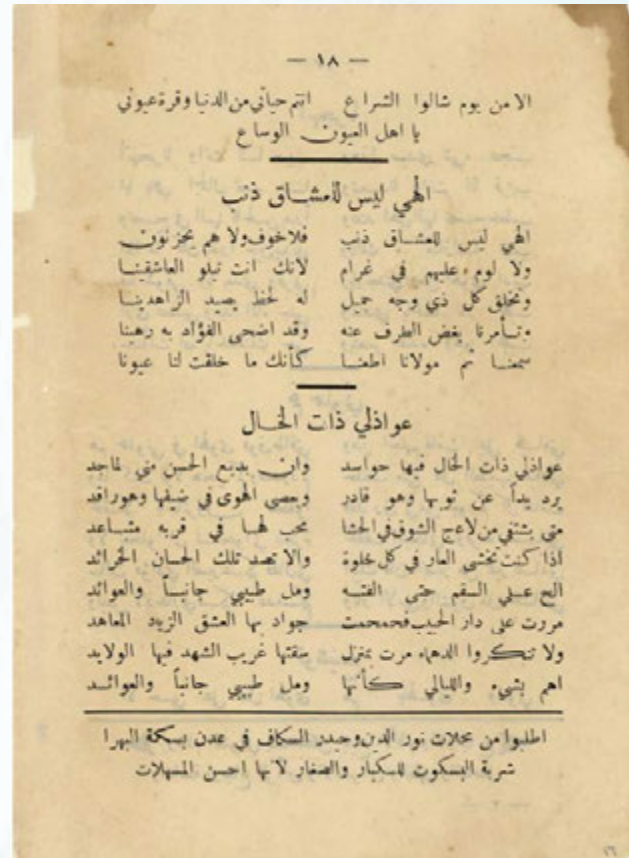 — ١٨ —
الا من يوم شالوا الشراع انتم حياتي من الدنيا وقرة عيوني
يا اهل العيون الوساع
الهي ليس للعشاق ذنب
الهي ليس للعشاق ذنب فلا خوف ولا هم يحزنون
ولا لوم عليهم في غرام لانك انت تبلو العاشقينا
وتخلق كل ذي وجه جميل له لحظ يصيد الزاهدينا
وتأمرنا بغض الطرف عنه وقد اضحى الفؤاد به رهينا
سمعنا ثم مولانا اطعنا كأنك ما خلقت لنا عيونا
عواذلي ذات الخال
عواذلي ذات الخال فيها حواسد وان بديع الحسن مني لماجد
يرد يداً عن ثوبها وهو قادر ويعصى الهوى في ضيفها وهو راقد
متى يشتفي من لاعج الشوق في الحشا محب لها في قربه متباعد
اذا كنت تخشى العار في كل خلوة والا تصد تلك الحسان الخرائد
الح علي السقم حتى الفته ومل طبيبي جانباً والعوائد
مررت على دار الحبيب فحمحمت جواد بها العشق الزيد المعاهد
ولا تنكروا الدهماء مرت بمنزل سقتها غريب الشهد فيها الولايد
اهم بشيء والليالي كأنها ومل طبيبي جانباً والعوائد
اطلبوا من محلات نور الدين وحيدر السكاف في عدن بسكة البهرا
شربة البسكوت للكبار والصغار لانها احسن المسهلات
٢٦